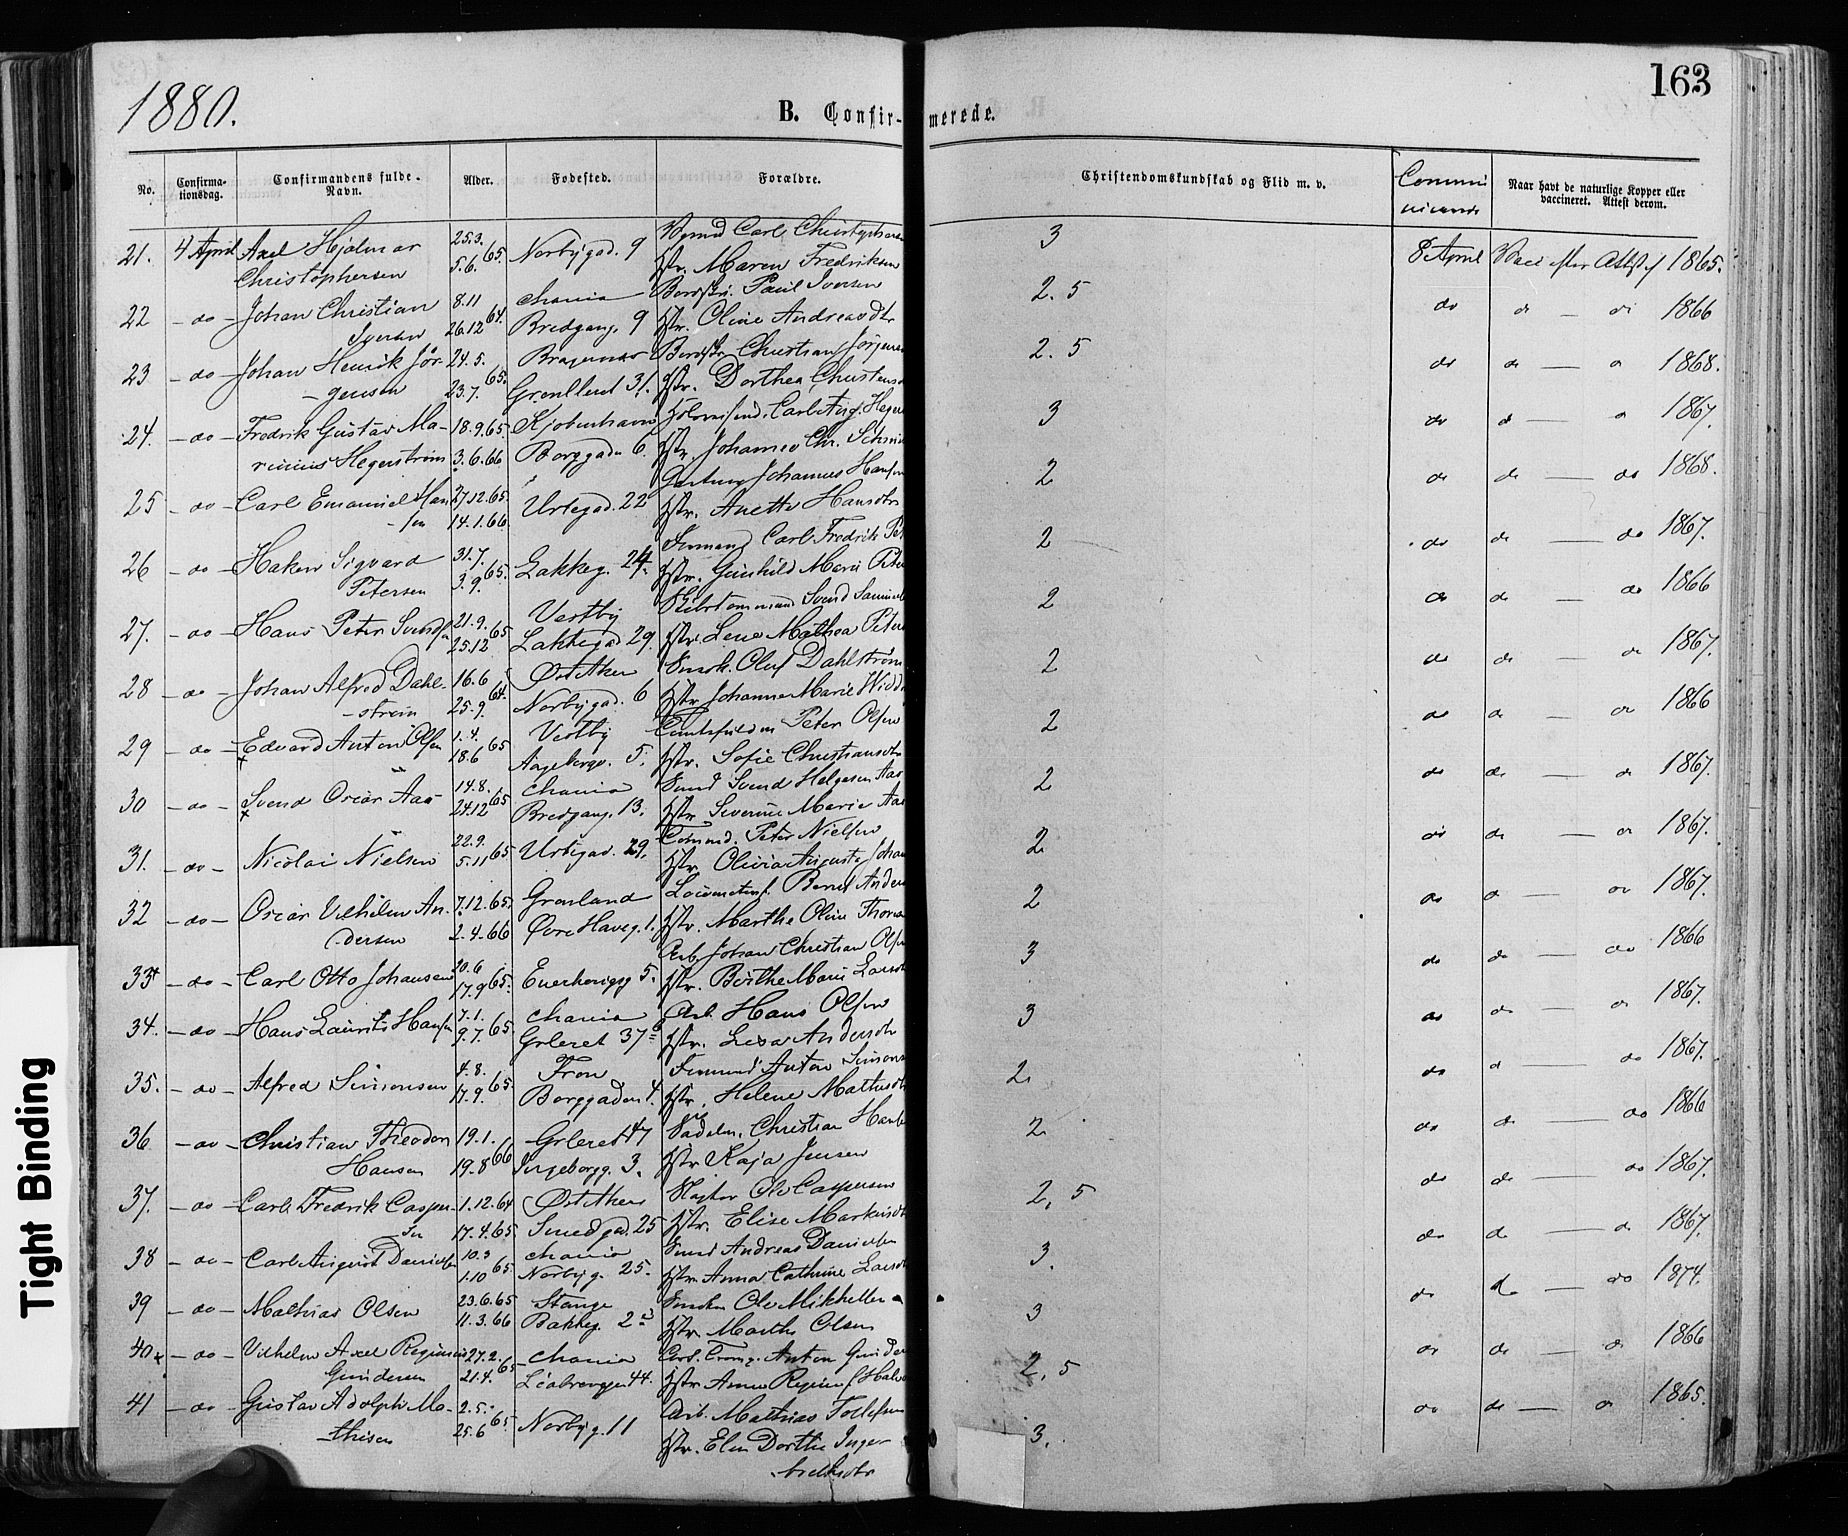 1880.
B. Confir-
merede.
163
No.
Confirma-
tionsdag.
Confirmandens fulde
Navn.
Alder.
Fødested.
Forældre.
Christendomskundskab og Flid m. v.
Communi
Naar havt de naturlige Kopper eller
vaccineret. Attest derom.
21. 4 April Axel Hjalmar 25.3. 65. Norbygad. 9 Carl Christophersen 3 8 April Vacc. efter Attest af 1865.
Christophersen 5.6. Hstr. Maren Fredriksen
22 - do - Johan Christian 8.11 64. Chania Paul Iversen 2.5 do d - do 1866
Iversen 26.12 Bredgang. 9 Hstr. Oline Andreasdtr
23 - do - Johan Henrik Jør- 24.5. 65. Bragernæs Christian Jørgensen 2.5 do do - do 1868.
- gensen 23.7. Grønlleret 31. Hstr. Dorthea Christens
24. - do - Fredrik Gustav Ma- 18.9.65. Kjøbenhavn Carl Aug. Heger 3 do d - do 1867.
rinius Hegerstrøm 3.6.66 Borggaden 6. Hstr. Johanne Chr. Schmi
25 - do - Carl Emanuel Han 27.12.65. Urtegad. 22 Johannes Hansen 2 do do - do 1868.
- sen 14.1.66. Hstr. Anette Hansdtr
26 - do - Haken Sigvard 31.7. 65. Lakkeg. 24. Carl Fredrik Pet 2 do do - do 1867.
Petersen 3.9. Hstr. Gunhild Marie Peter
27. - do - Hans Peter Svends 21.9. 65 Vestby Svend Samuel 2 do do - do 1866
25.12 Lakkegad. 29. Hstr. Lene Mathea Peter
28 - do - Johan Alfred Dahl- 16.6 64. Øst Aker Snedk. Oluf Dahlstrøm 2 do do - do 1867.
- strøm 25.9. Norbygad. 6 Hstr. Johanne Marie
29 - do - Edvard Anton Olsen 1.4. 65 Vestby Peter Olsen 2 do do - do 1866
18.6 5. Hstr. Sofie Christiansdtr
30 - do - Svend Oscar Aas 14.8. 65 Chania Svend Helgesen Aas 2 do do - do 1867.
24.12 Bredgang. 13. Hstr. Severine Marie Aas
31. - do - Nicolai Nielsen 22.9. 65 Urtegad. 29. Peter Nielsen 2 do do - do 1867.
5.11 Hstr. Olivia Augusta Johan
32 - do - Oscar Vilhelm An- 7.12.65. Grønland Bernt Anders 2 do d - do 1867.
dersen 2.4.66 Øvre Haveg. 1. Hstr. Marthe Oline Thores
33 - do - Carl Otto Johansen 20.6 65. Enerhaugg 5. Arb. Johan Christian Olsen 3 do do - do 1866
17.9 Hstr. Berthe Marie Larsdtr
34. - do - Hans Laurits Hansen 7.1. 65. Chania Arb. Hans Olsen 3 do do - do 1867.
9.7. Grleret 37 Hstr. Lisa Andersdtr
35. - do - Alfred Simonsen 4.8. 65. Fron Anton Simons 2. do d - do 1867.
17.9. Borggaden 4. Hstr. Helene Mathisdtr
36 - do - Christian Theodor 19.1. 66 Grleret 47 Christian Hans 2 do do - do 1866
Hansen 19.8 Ingeborgg. 3. Hstr. Kaja Jensen
37. - do - Carl Fredrik Casper- 1.12.64 Øst Aker Ole Caspersen 2,5 do do - do 1867.
sen 17.4.65. Smedgad. 25 Hstr. Elise Markusdtr
38 - do - Carl August Danielsen 10.3 65. Chania Andreas Danielsen 3. do do - do 1867.
1.10 Norbyg. 25. Hstr. Anna Cathrine Larsdtr
39 - do - Mathias Olsen 23.6.65 Stange Ole Mikkelsen 3 do do - do 1874.
11.3.66 Bakkeg. 2 Hstr. Marthe Olsen
40 - do - Vilhelm Axel Reginius 27.2. 65 Chania Anton Gunder 2,5 do do - do 1866
Gundersen 21.4. 44. Hstr. Anne Regine
41 - do - Gustav Adolph Ma- 2.5. 65 Norbyg. 11 Arb. Mathias Tollefsen 3. do do - do 1865.
thisen 25.6 Hstr. Elen Dorthe Inge-
Tight Binding